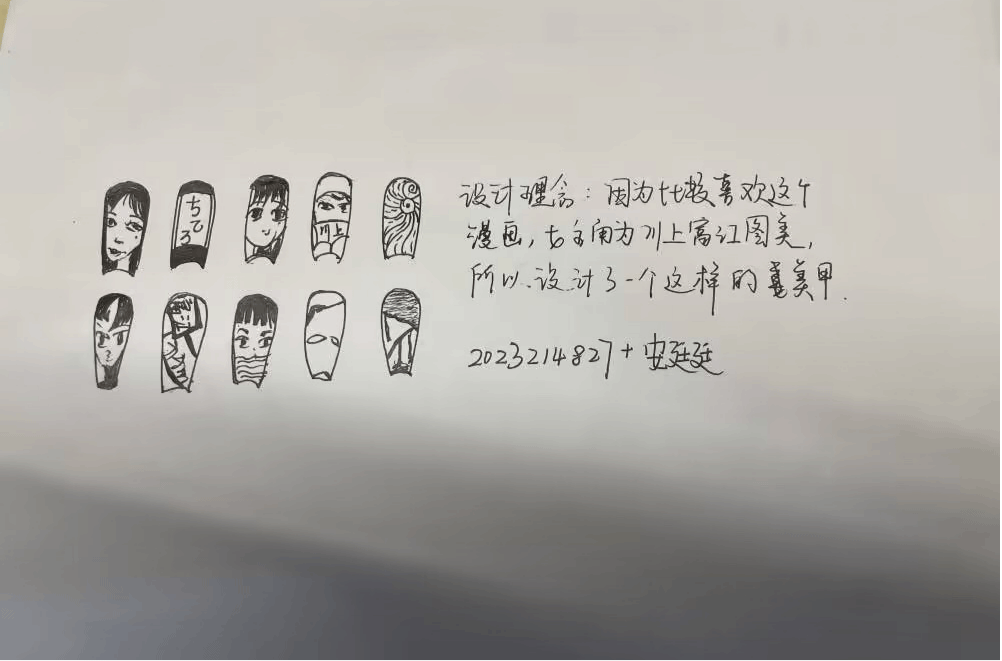 ちてろ
川上
设计理念：因为比较喜欢这个
漫画，女主角为川上富江图美，
所以设计了一个这样的美甲.
2023214827+安廷廷